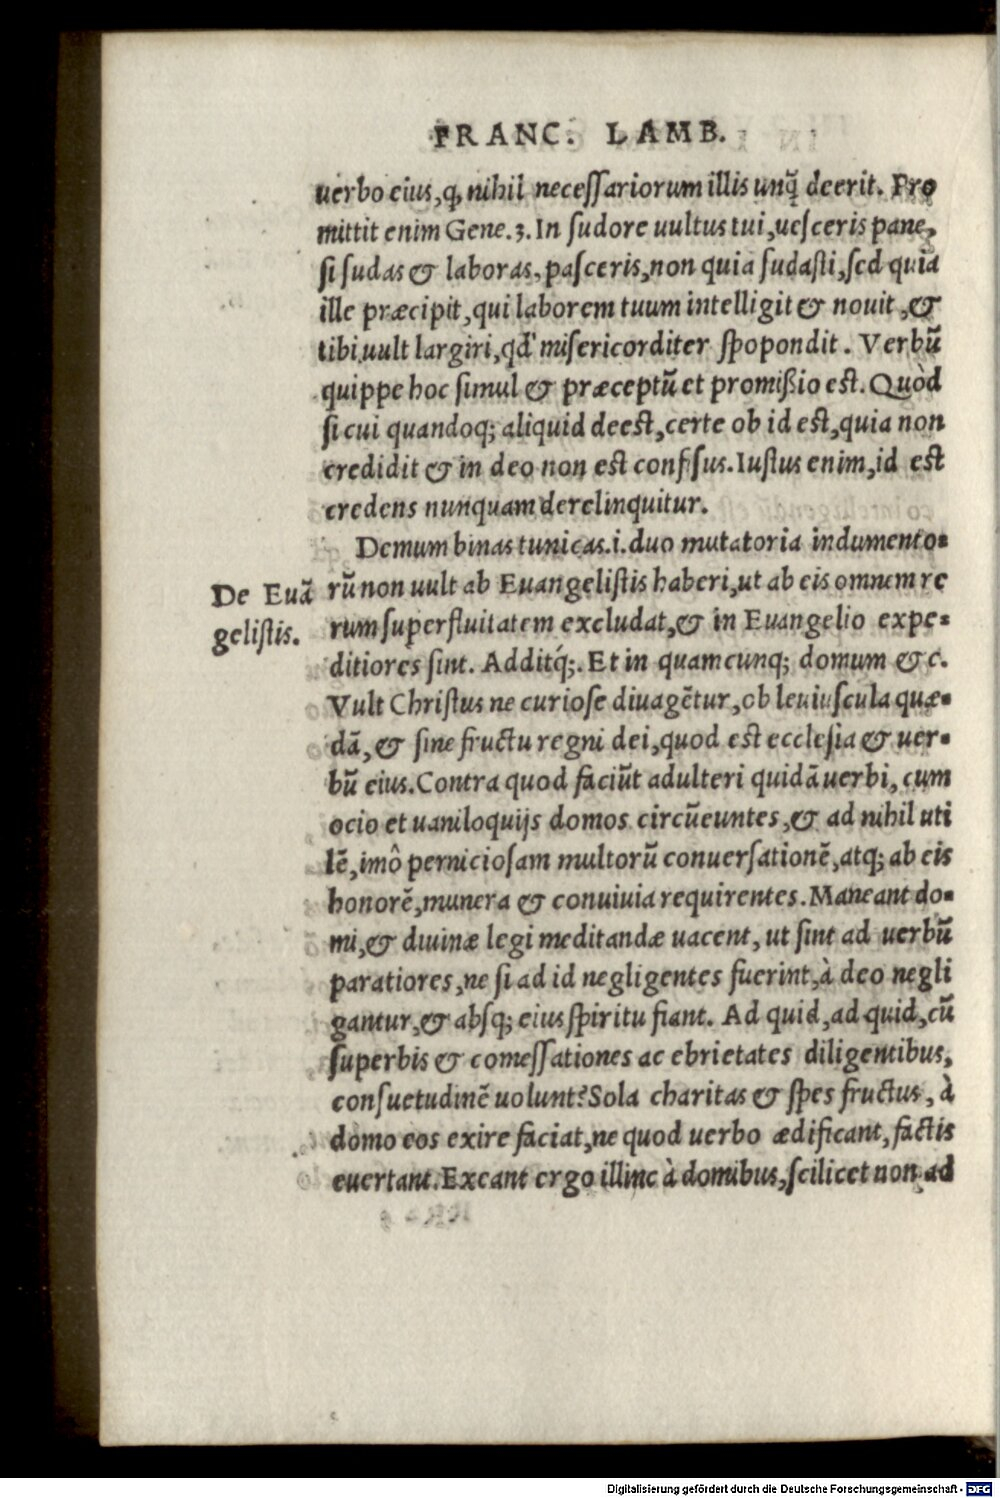 FRANC. LAMB.
uerbo eius, ꝙ nihil necessariorum illis unq̃ deerit. Pro
mittit enim Gene.3. In sudore uultus tui, uesceris pane,
si sudas & laboras, pasceris, non quia sudasti, sed quia
ille præcipit, qui laborem tuum intelligit & nouit, &
tibi uult largiri, qd' misericorditer spopondit. Verbũ
quippe hoc simul & præceptũ et promißio est. Quòd
si cui quandoq; aliquid deest, certe ob id est, quia non
credidit & in deo non est confisus. Iustus enim, id est
credens nunquam derelinquitur.
Demum binas tunicas .i. duo mutatoria indumento-
De Euã
rũ non uult ab Euangelistis haberi, ut ab eis omnem re
gelistis.
rum superfluitatem excludat, & in Euangelio expe-
ditiores sint. Additq́;. Et in quamcunq; domum &c.
Vult Christus ne curiose diuagẽtur, ob leuiuscula quæ-
dã, & sine fructu regni dei, quod est ecclesia & uer-
bũ eius. Contra quod faciũt adulteri quidã uerbi, cum
ocio et uaniloquijs domos circũeuntes, & ad nihil uti
lẽ, imò perniciosam multorũ conuersationẽ, atq; ab eis
honorẽ, munera & conuiuia requirentes. Maneant do-
mi, & diuinæ legi meditandæ uacent, ut sint ad uerbũ
paratiores, ne si ad id negligentes fuerint, à deo negli
gantur, & absq; eius spiritu fiant. Ad quid, ad quid, cũ
superbis & comessationes ac ebrietates diligentibus,
consuetudinẽ uolunt? Sola charitas & spes fructus, à
domo eos exire faciat, ne quod uerbo ædificant, factis
euertant. Exeant ergo illinc à domibus, scilicet non ad
Digitalisierung gefördert durch die Deutsche Forschungsgemeinschaft - DFG